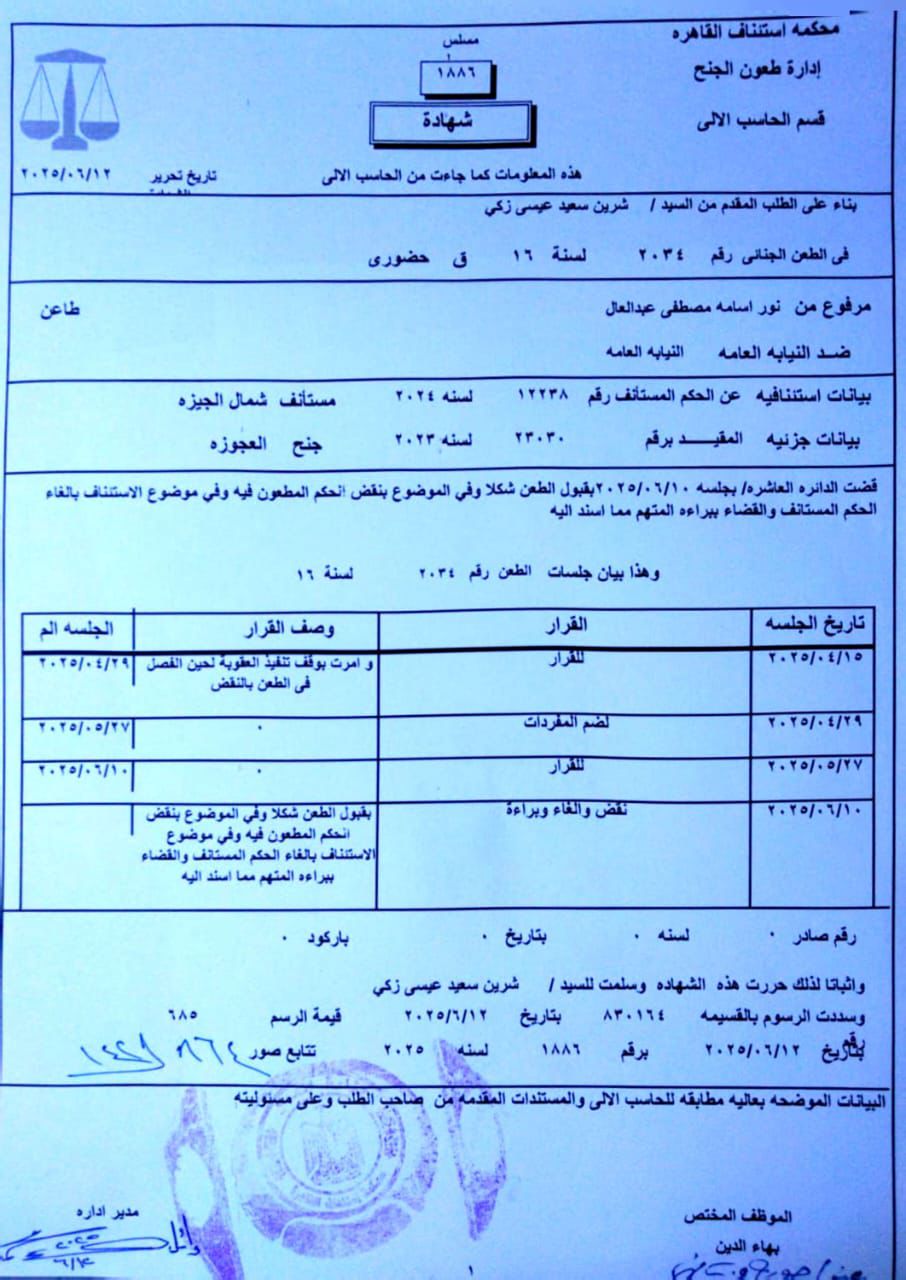 محكمه استئناف القاهره
إدارة طعون الجنح
قسم الحاسب الالى
مسلس
١٨٨٦
شهادة
هذه المعلومات كما جاءت من الحاسب الالى
تاريخ تحرير ٢٠٢٥/٠٦/١٢
بناء على الطلب المقدم من السيد / شرين سعيد عيسى زكي
فى الطعن الجنائى رقم ٢٠٣٤ لسنة ١٦ ق حضورى
مرفوع من نور اسامه مصطفى عبدالعال طاعن
ضد النيابه العامه النيابه العامه
بيانات استئنافيه عن الحكم المستأنف رقم ١٢٢٣٨ لسنه ٢٠٢٤ مستأنف شمال الجيزه
بيانات جزئيه المقيد برقم ٢٣٠٣٠ لسنه ٢٠٢٣ جنح العجوزه
قضت الدائره العاشره/ بجلسه ٢٠٢٥/٠٦/١٠بقبول الطعن شكلا وفي الموضوع بنقض الحكم المطعون فيه وفي موضوع الاستئناف بالغاء
الحكم المستانف والقضاء ببراءه المتهم مما اسند اليه
وهذا بيان جلسات الطعن رقم ٢٠٣٤ لسنة ١٦
تاريخ الجلسه القرار وصف القرار الجلسه الم
٢٠٢٥/٠٤/١٥ للقرار و امرت بوقف تنفيذ العقوبة لحين الفصل ٢٠٢٥/٠٤/٢٩
فى الطعن بالنقض
٢٠٢٥/٠٤/٢٩ لضم المفردات ٠ ٢٠٢٥/٠٥/٢٧
٢٠٢٥/٠٥/٢٧ للقرار ٠ ٢٠٢٥/٠٦/١٠
٢٠٢٥/٠٦/١٠ نقض والغاء وبراءة بقبول الطعن شكلا وفي الموضوع بنقض
الحكم المطعون فيه وفي موضوع
الاستئناف بالغاء الحكم المستانف والقضاء
ببراءه المتهم مما اسند اليه
رقم صادر ٠ لسنه ٠ بتاريخ ٠ باركود ٠
واثباتا لذلك حررت هذه الشهاده وسلمت للسيد / شرين سعيد عيسى زكي
وسددت الرسوم بالقسيمه ٨٣٠١٦٤ بتاريخ ٢٠٢٥/٦/١٢ قيمة الرسم ٦٨٥
رقم
بتاريخ ٢٠٢٥/٠٦/١٢ برقم ١٨٨٦ لسنه ٢٠٢٥ تتابع صور
البيانات الموضحه بعاليه مطابقه للحاسب الالى والمستندات المقدمه من صاحب الطلب وعلى مسئوليته
الموظف المختص
مدير اداره
بهاء الدين
١